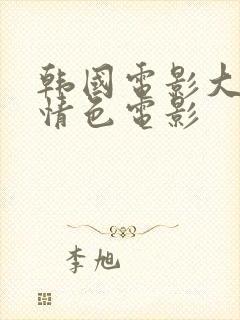 韩國電影大
情色電影
李旭